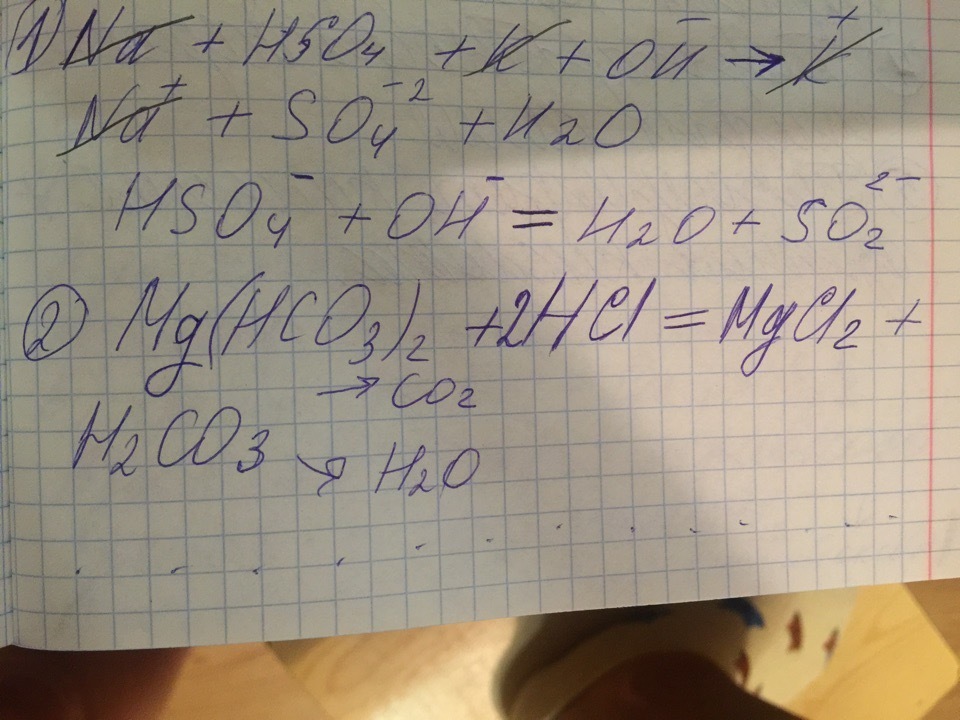 1) Na + HSO₄ + K + OH⁻ → K⁺
Na⁺ + SO₄⁻² + H₂O
HSO₄⁻ + OH⁻ = H₂O + SO₂²⁻
② Mg(HCO₃)₂ + 2HCl = MgCl₂ +
→ CO₂
H₂CO₃
↘ H₂O